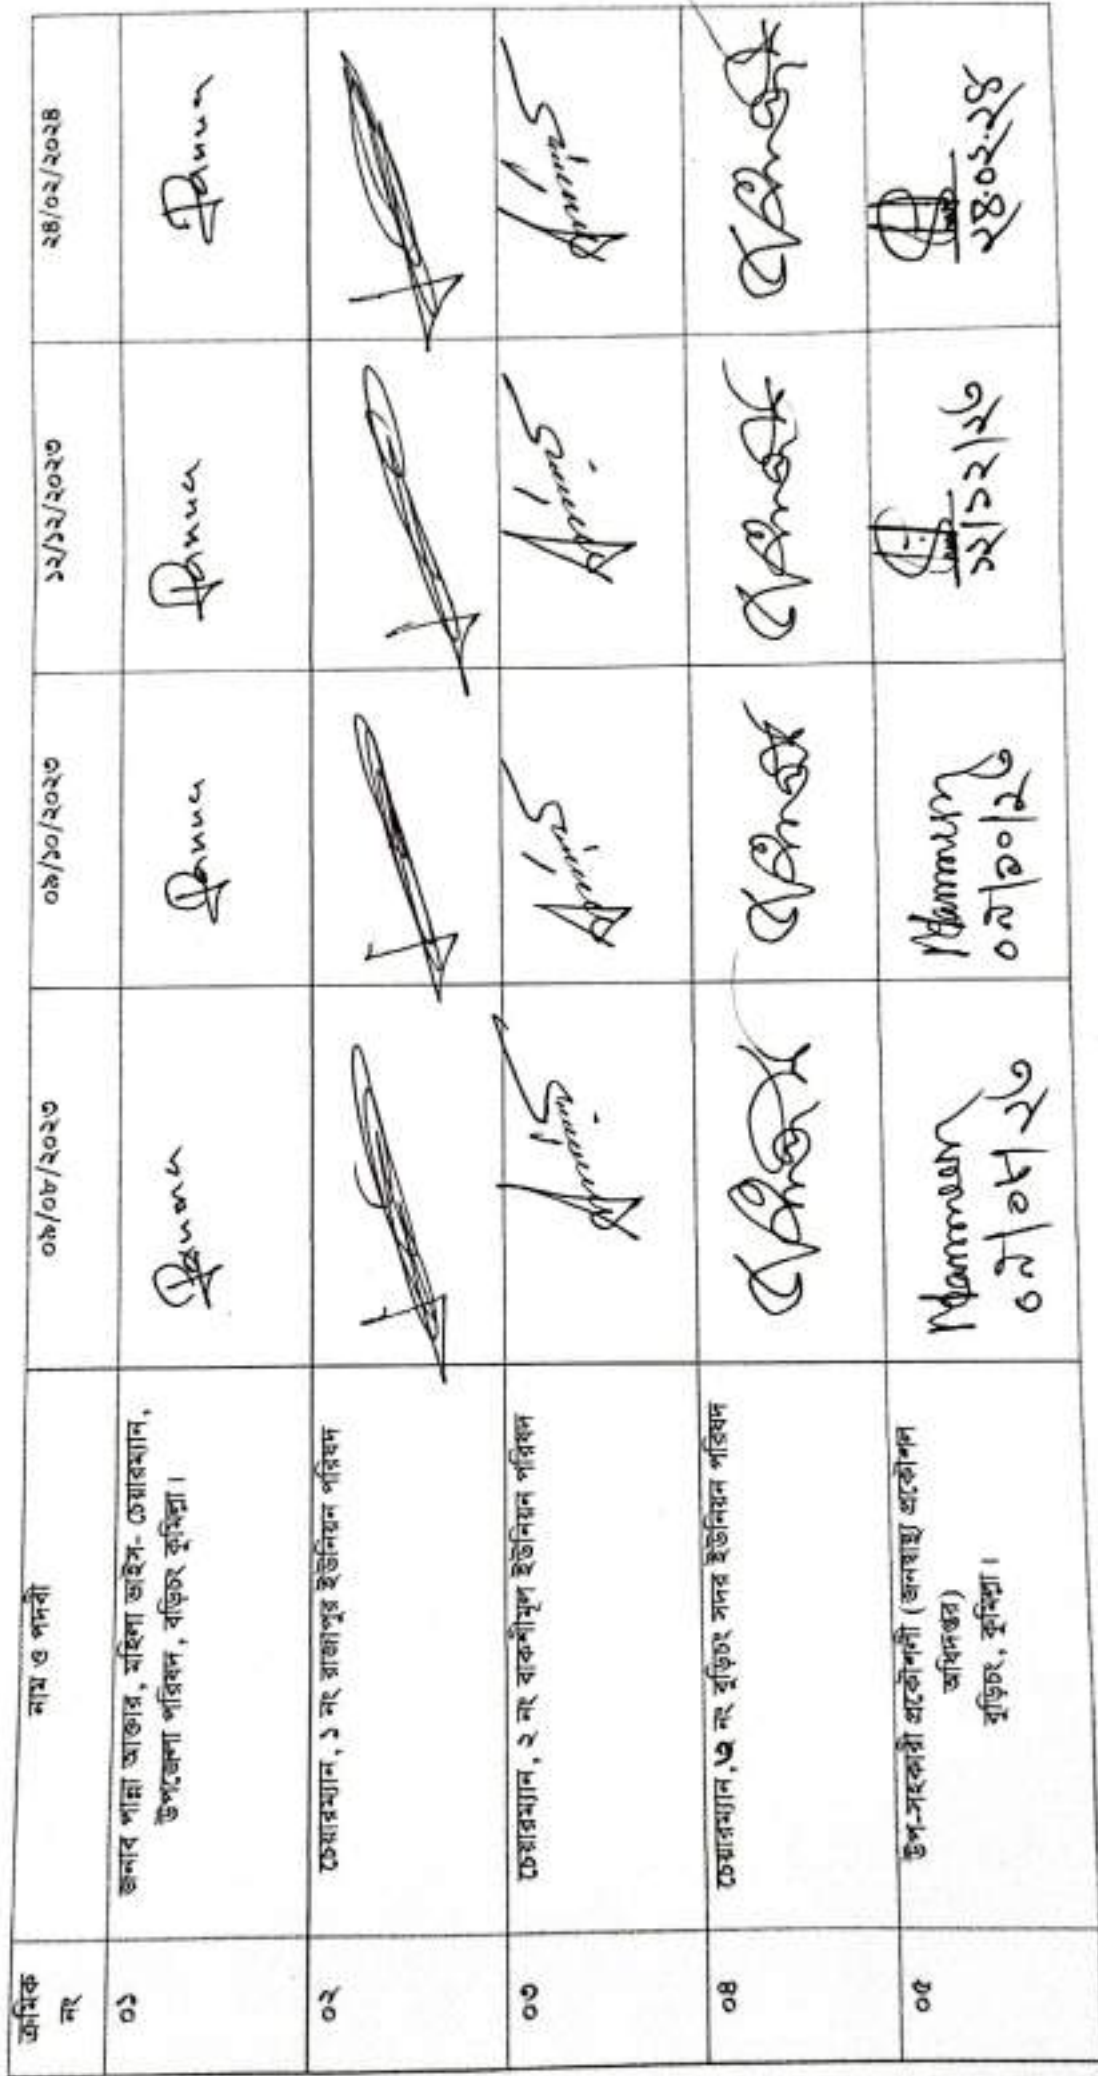 ক্রমিক
নং
নাম ও পদবী
০৯/০৮/২০২৩
০৯/১০/২০২৩
১২/১২/২০২৩
২৪/০২/২০২৪
০১
জনাব পান্না আক্তার, মহিলা ভাইস- চেয়ারম্যান,
উপজেলা পরিষদ, বুড়িচং কুমিল্লা।
Panna
Panna
Panna
Panna
০২
চেয়ারম্যান, ১ নং রাজাপুর ইউনিয়ন পরিষদ
০৩
চেয়ারম্যান, ২ নং বাকশীমূল ইউনিয়ন পরিষদ
০৪
চেয়ারম্যান, ৩ নং বুড়িচং সদর ইউনিয়ন পরিষদ
০৫
উপ-সহকারী প্রকৌশলী (জনস্বাস্থ্য প্রকৌশল
অধিদপ্তর)
বুড়িচং, কুমিল্লা।
০৯/০৮/২৩
০৯/১০/২৩
১২/১২/২৩
২৪.০২.২৪